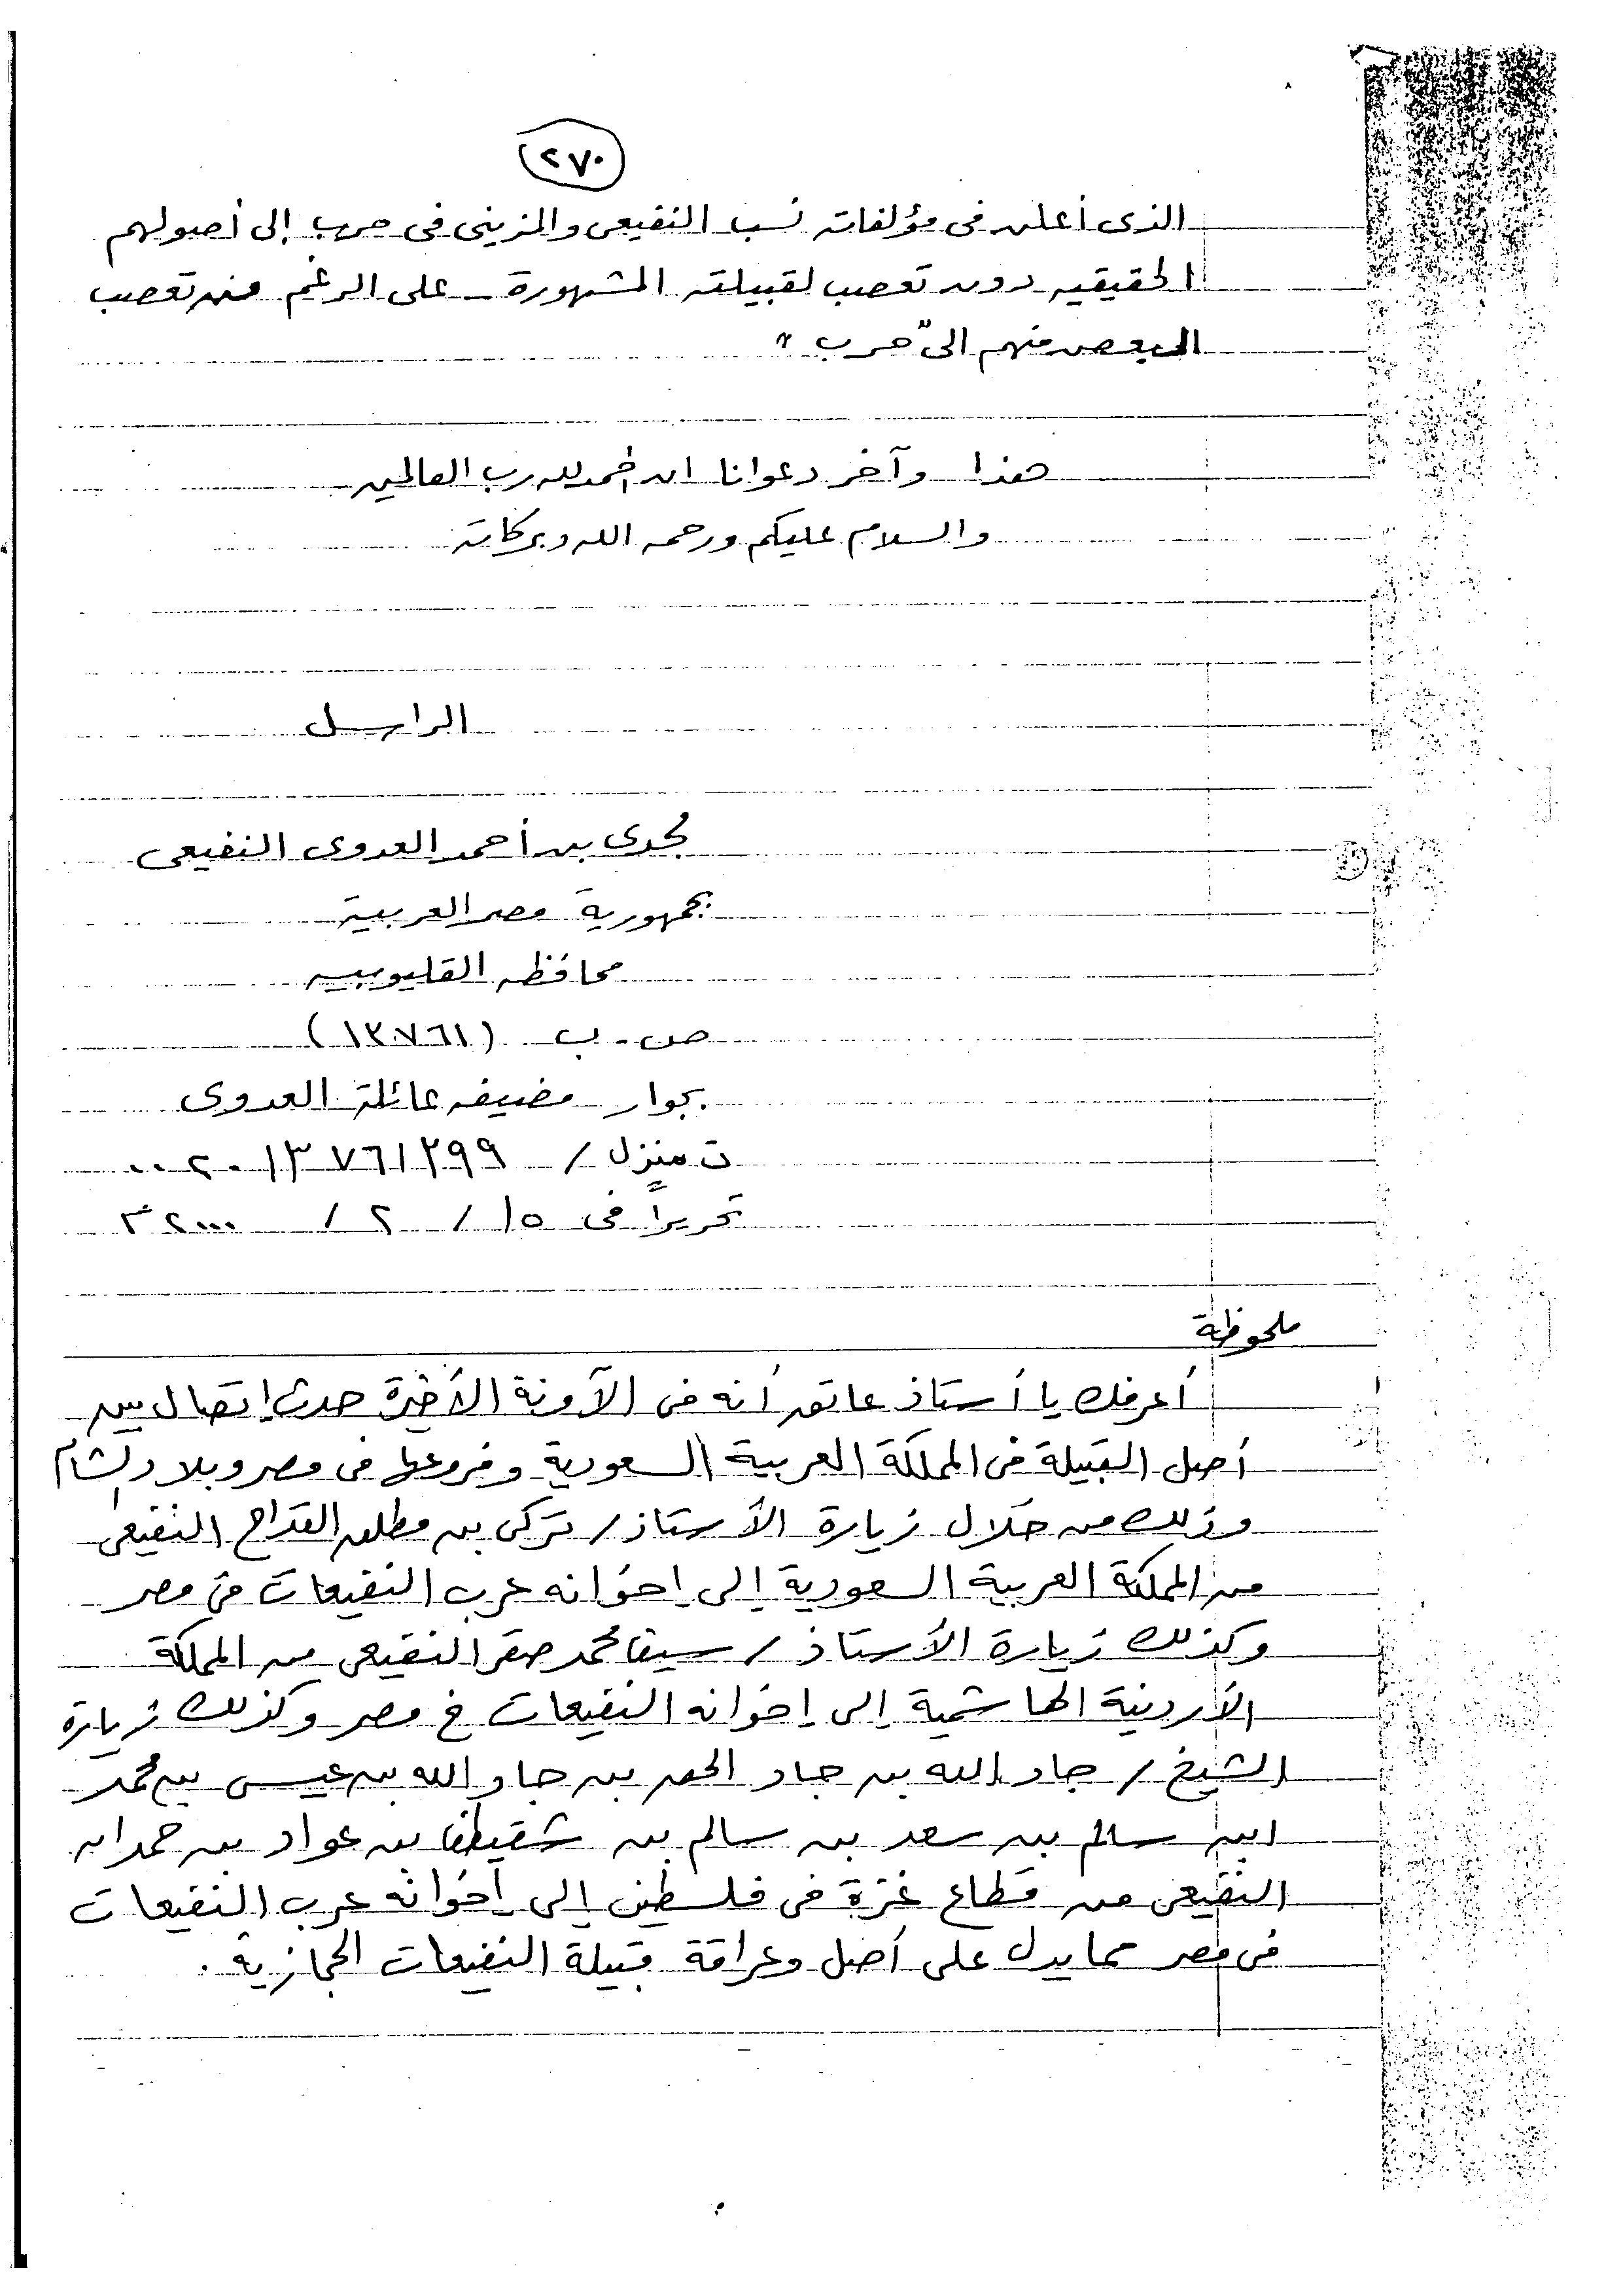 ٢٧٠
الذى أعلن فى مؤلفاته نسب النفيعى والمزينى فى حرب إلى أصولهم
الحقيقيه دون تعصب لقبيلته المشهورة - على الرغم من تعصب
البعض منهم الى "حرب"
هذا وآخر دعوانا ان الحمد لله رب العالمين
والسلام عليكم ورحمه الله وبركاته
الراسل
مجدى بن أحمد العدوى النفيعى
جمهورية مصر العربية
محافظه القليوبيه
ص . ب (١٣٧٦١)
بجوار مضيفه عائلة العدوى
ت منزل / ٠٠٢٠١٣٧٦١٢٩٩
تحريراً فى ١٥ / ٢ / ٢٠٠٠م
ملحوظة
أعرفك يا أستاذ عاتق أنه فى الآونة الأخيرة حدث إتصال بين
أصل القبيلة فى المملكة العربية السعودية وفروعها فى مصر وبلاد الشام
وذلك من خلال زيارة الأستاذ / تركى بن مطلق القداح النفيعى
من المملكة العربية السعودية إلى إخوانه عرب النفيعات فى مصر
وكذلك زيارة الأستاذ / سيف محمد صقر النفيعى من المملكة
الأردنية الهاشمية إلى إخوانه النفيعات فى مصر وكذلك زيارة
الشيخ / جاد الله بن جاد الحق بن جاد الله بن عيسى بن محمد
ابن سالم بن سعد بن سالم بن شقيطف بن عواد بن حمدان
النفيعى من قطاع غزة فى فلسطين إلى إخوانه عرب النفيعات
فى مصر مما يدل على أصل وعراقة قبيلة النفيعات الحجازية .